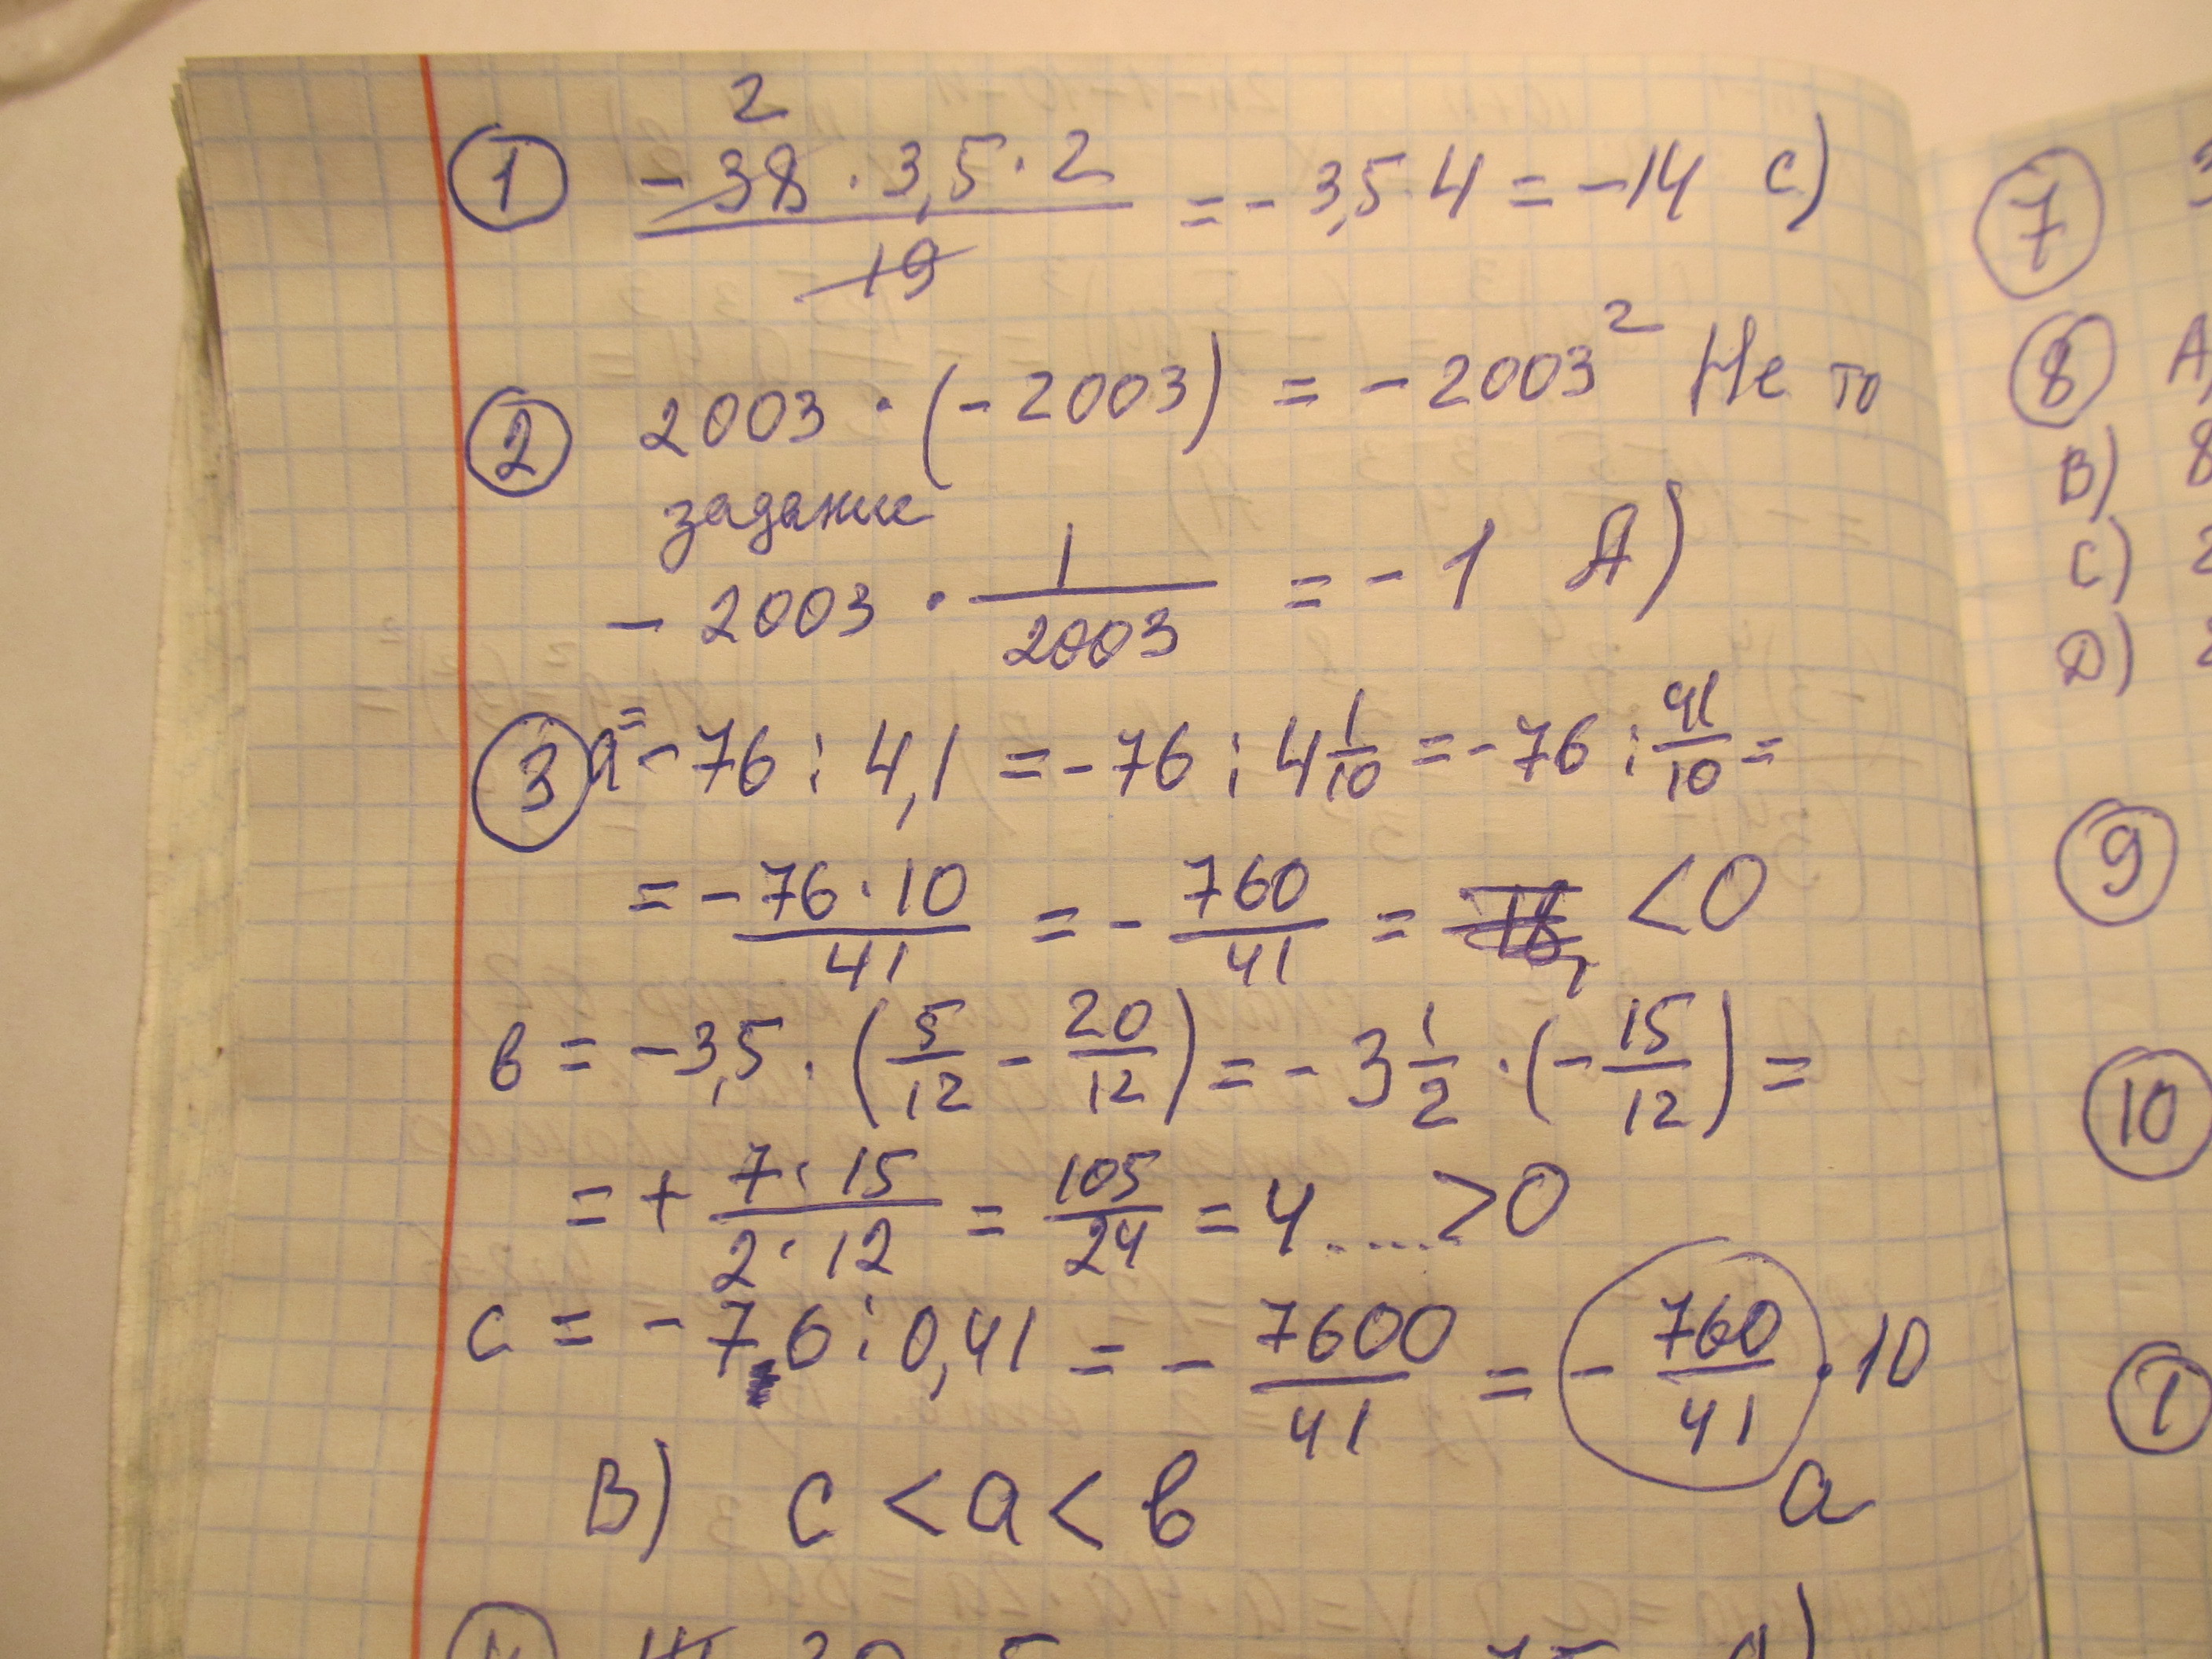 2
① -38 · 3,5 · 2 / 19 = - 3,5 · 4 = -14 C)
② 2003 · (-2003) = - 2003² Не то
задание
- 2003 · 1/2003 = - 1 A)
③ a = - 76 : 4,1 = - 76 : 4 1/10 = - 76 : 41/10 =
= - 76 · 10 / 41 = - 760/41 = < 0
в = - 3,5 · (5/12 - 20/12) = - 3 1/2 · (- 15/12) =
= + 7 · 15 / 2 · 12 = 105/24 = 4 ..... > 0
c = - 76 : 0,41 = - 7600/41 = - 760/41 · 10
a
B) c < a < в
7
8 A)
B) 8
C) 2
D) 2
9
10
1